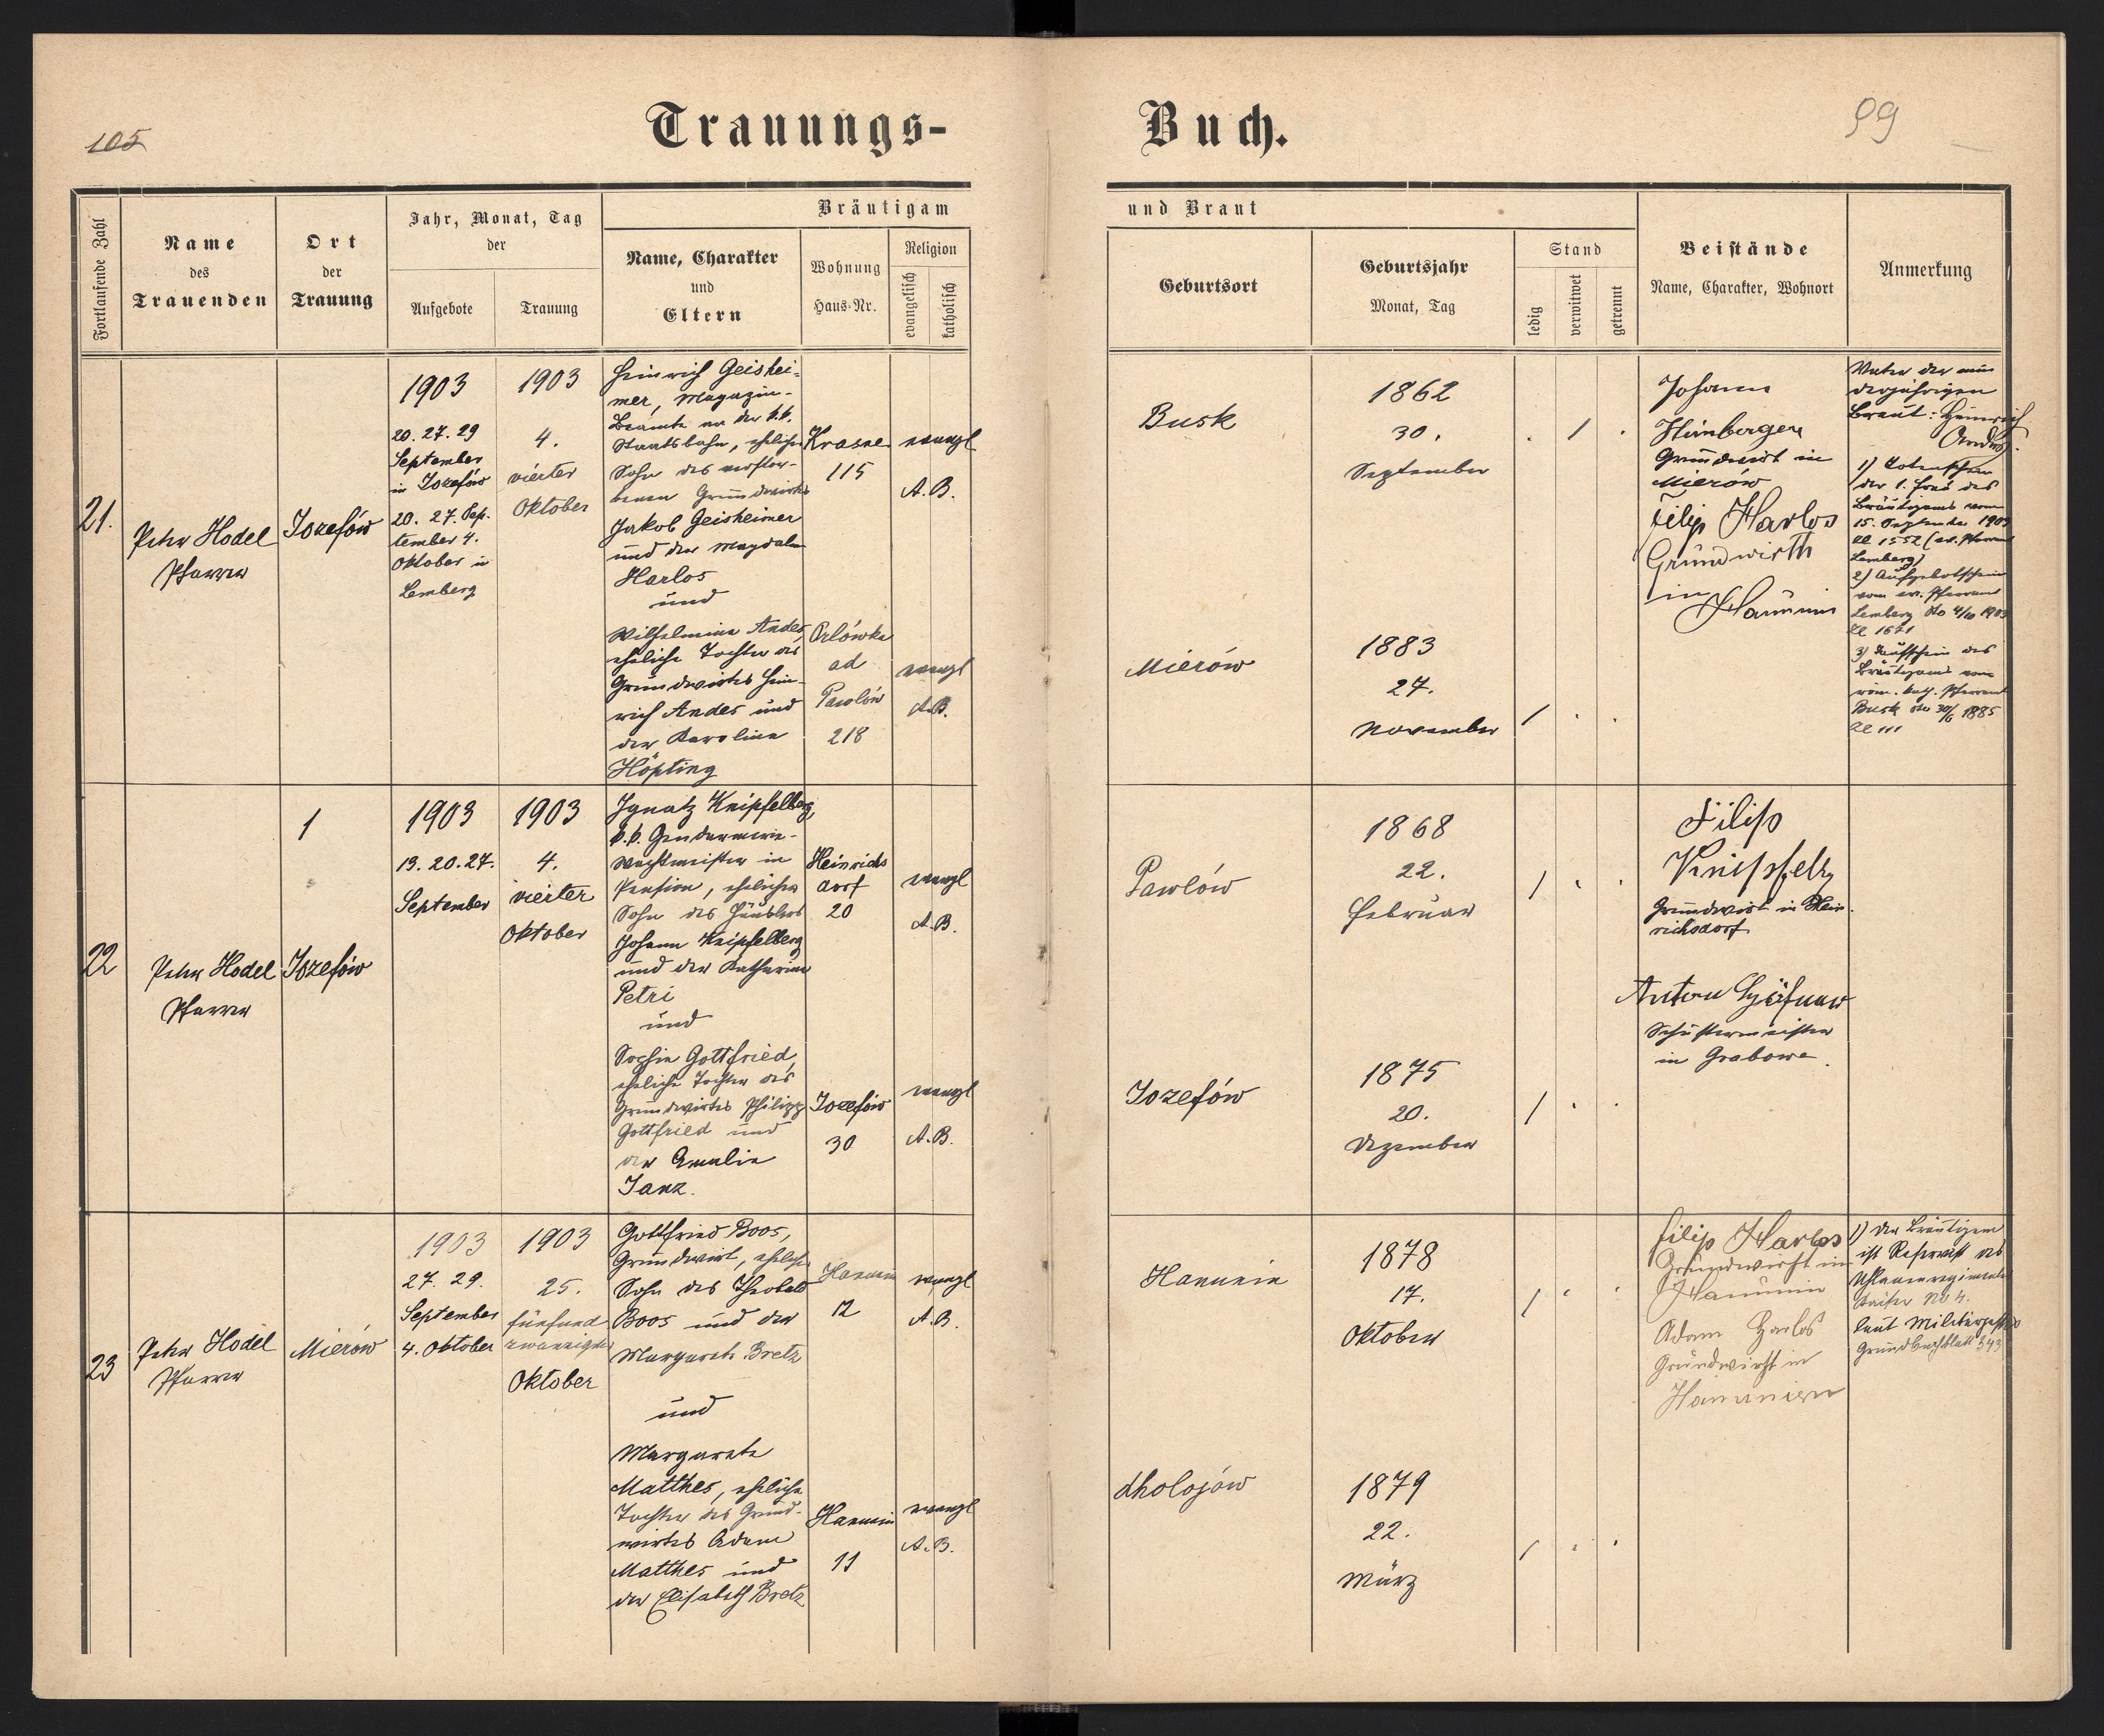 105
Trauungs-
Buch.
99
Fortlaufende Zahl
Name
des
Trauenden
Ort
der
Trauung
Jahr, Monat, Tag
der
Aufgebote
Trauung
Bräutigam
Name, Charakter
und
Eltern
Wohnung
Haus-Nr.
Religion
evangelisch
katholisch
und Braut
Geburtsort
Geburtsjahr
Monat, Tag
Stand
ledig
verwitwet
getrennt
Beistände
Name, Charakter, Wohnort
Anmerkung
21.
Peter Hodel
Pfarrer
Jozefów
1903
20. 27. 29
September
in Jozefów
20. 27. Sep-
tember 4.
Oktober in
Lemberg
1903
4.
vierter
Oktober
Heinrich Geishei-
mer, Magazin-
Beamte an der k.k.
Staatsbahn, ehelicher
Sohn des verstor-
benen Grundwirts
Jakob Geisheimer
und der Magdalena
Harlos
und
Wilhelmine Andes,
eheliche Tochter des
Grundwirtes Hein-
rich Andes und
der Karoline
Höpting
Krasne
115
Orlówka
ad
Pawlów
218
evangl
A.B.
evangl
A.B.
Busk
Mierów
1862
30.
September
1883
27.
November
Johann
Hirnberger
Grundwirt in
Mierów
Filip Harlos
Grundwirth
in Hanunin
Vater der min
derjährigen
Braut: Heinrich
Andes.
1) Totenschein
der 1. Frau des
Bräutigams vom
15. September 1903
Zl 1552 (ev. Pfarramt
Lemberg)
2) Aufgebotschein
vom ev. Pfarramt
Lemberg dto 4/10 1903
Zl 1671
3) Taufschein des
Bräutigams vom
röm. kath. Pfarramt
Busk dto 30/6 1885
Zl 111
22
Peter Hodel
Pfarrer
1
Jozefów
1903
13. 20. 27.
September
1903
4.
vierter
Oktober
Ignatz Knipfelberg,
k.k. Gendarmerie-
Wachtmeister in
Pension, ehelicher
Sohn des Häuslers
Johann Knipfelberg
und der Katharina
Petri
und
Sophie Gottfried,
eheliche Tochter des
Grundwirtes Philipp
Gottfried und
der Amalie
Janz.
Heinrichs
dorf
20
Jozefów
30
evangl
A.B.
evangl
A.B.
Pawlów
Jozefów
1868
22.
Februar
1875
20.
Dezember
Filip
Grundwirt in Hein
richsdorf
Anton
Schustermeister
in Grabowa
23
Peter Hodel
Pfarrer
Mierów
1903
27. 29.
September
4. Oktober
1903
25.
fünfund
zwanzigster
Oktober
Gottfried Boos,
Grundwirt, ehelicher
Sohn des Theobald
Boos und der
Margareth Bretz
und
Margarete
Matthes, eheliche
Tochter des Grund-
wirtes Adam
Matthes und
der Elisabeth Bretz
Hanunin
12
Hanunin
11
evangl
A.B.
evangl
A.B.
Hanunin
Cholojów
1878
17.
Oktober
1879
22.
März
Filip Harlos
Grundwirth in
Hanunin
Adam Harlos
Grundwirth in
Hanunien
1) Der Bräutigam
ist Reservist des
Uhlanenregiments
Kaiser No 4.
laut Militärpasses
Grundbuchblatt 343